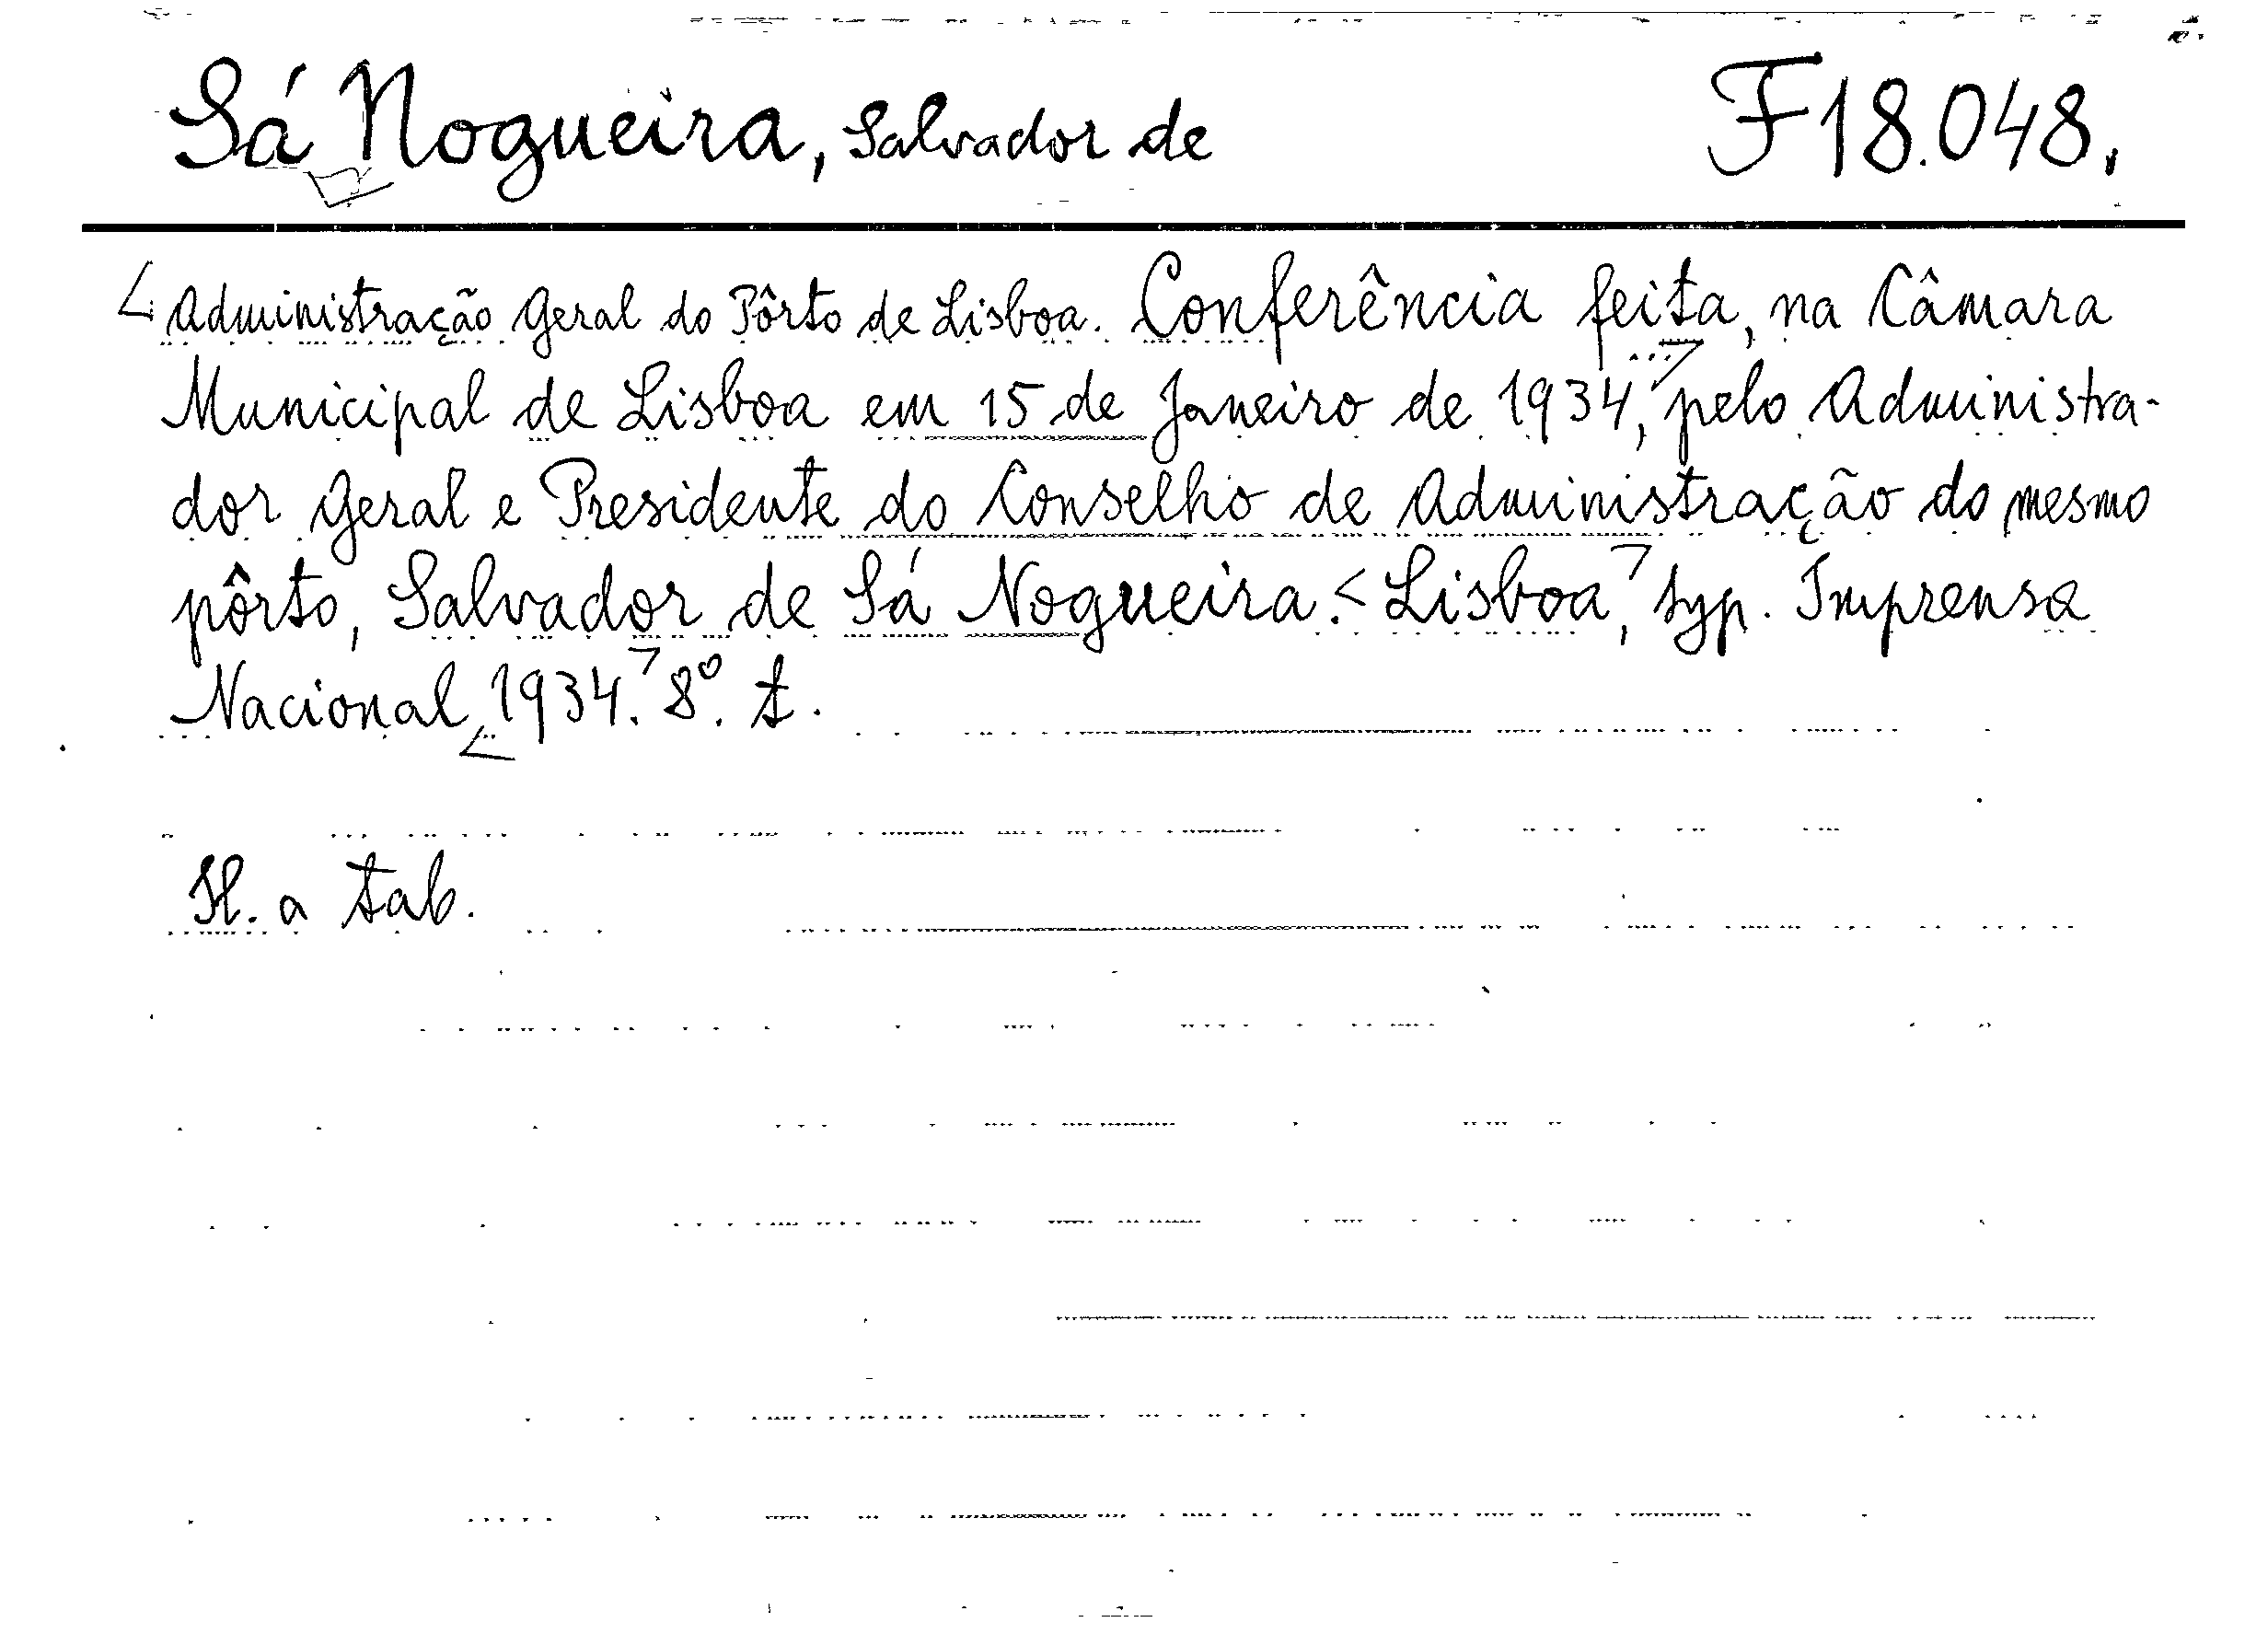 Sá Nogueira, Salvador de F 18.048.
Administração Geral do Pôrto de Lisboa. Conferência feita, na Câmara
Municipal de Lisboa em 15 de Janeiro de 1934, pelo Administra-
dor Geral e Presidente do Conselho de Administração do mesmo
pôrto, Salvador de Sá Nogueira. Lisboa, typ. Imprensa
Nacional, 1934. 8º. t.
H. a tab.